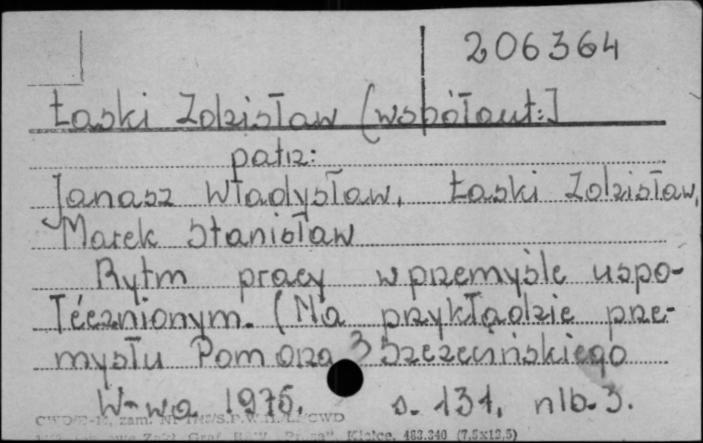 206364
Łaski Zdzisław (współaut:]
patrz:
Janasz Władysław, Łaski Zdzisław,
Marek Stanisław
Rytm pracy w przemyśle uspo-
łecznionym. (Na przykładzie prze-
mysłu Pomorza Szczecińskiego
W-wa 1975, s. 131, nlb. 3.
zam. CWD
Kielce, 463.340 (7,5x12,5)